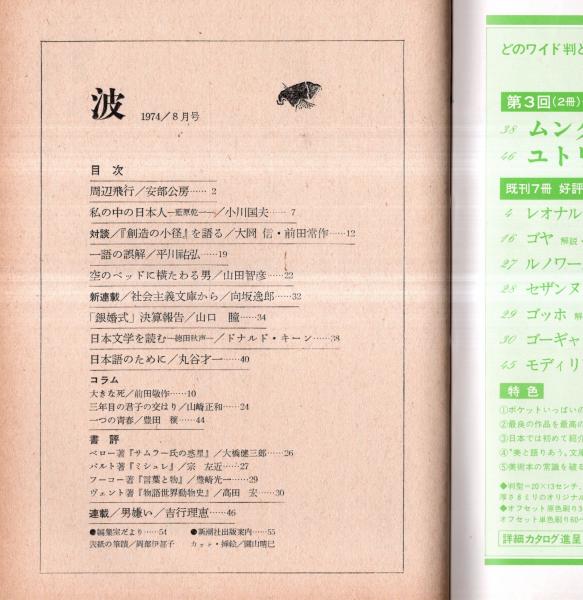 波
1974/8月号
目次
周辺飛行/安部公房……2
私の中の日本人―藍原乾一―/小川国夫……7
対談/『創造の小径』を語る/大岡 信・前田常作……12
一語の誤解/平川祐弘……19
空のベッドに横たわる男/山田智彦……22
新連載/社会主義文庫から/向坂逸郎……32
「銀婚式」決算報告/山口 瞳……34
日本文学を読む―徳田秋声―/ドナルド・キーン……38
日本語のために/丸谷才一……40
コラム
大きな死/前田敬作……10
三年目の君子の交はり/山崎正和……24
一つの青春/豊田 穣……44
書評
ベロー著『サムラー氏の惑星』/大橋健三郎……26
バルト著『ミシュレ』/宗 左近……27
フーコー著『言葉と物』/豊崎光一……29
ヴェント著『物語世界動物史』/高田 宏……30
連載/男嫌い/吉行理恵……46
●編集室だより……54 ●新潮社出版案内……55
表紙の筆蹟/岡部伊都子 カット・挿絵/園山晴巳
どのワイド判と
第3回(2冊)
38 ムンク
46 ユトリ
既刊7冊 好評
4 レオナル
16 ゴヤ 解説
27 ルノワー
28 セザンヌ
29 ゴッホ 解
30 ゴーギャ
45 モディリ
特色
①ポケットいっぱいの
②最良の作品を最高の
③日本では初めて紹介
④"美と語りあう。文庫
⑤美術本の常識を破る
◆判型=20×13センチ、
厚さ8ミリのオリジナル
◆オフセット原色刷り3
オフセット単色刷り60ペ
詳細カタログ進呈